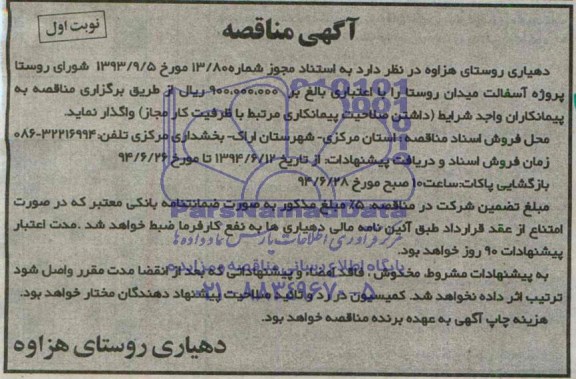 آگهی مناقصه
نوبت اول
دهیاری روستای هزاوه در نظر دارد به استناد مجوز شماره۱۳/۸۰۰ مورخ ۱۳۹۳/۹/۵ شورای روستا
پروژه آسفالت میدان روستا را با اعتباری بالغ بر ۹۰۰,۰۰۰,۰۰۰ ریال از طریق برگزاری مناقصه به
پیمانکاران واجد شرایط (داشتن صلاحیت پیمانکاری مرتبط با ظرفیت کار مجاز) واگذار نماید.
محل فروش اسناد مناقصه: استان مرکزی- شهرستان اراک- بخشداری مرکزی تلفن:۳۲۲۱۶۹۹۴-۰۸۶
زمان فروش اسناد و دریافت پیشنهادات: از تاریخ ۱۳۹۴/۶/۱۲ تا مورخ ۹۴/۶/۲۶
بازگشایی پاکات:ساعت۱۰ صبح مورخ ۹۴/۶/۲۸
مبلغ تضمین شرکت در مناقصه: ۵٪ مبلغ مذکور به صورت ضمانتنامه بانکی معتبر که در صورت
امتناع از عقد قرارداد طبق آئین نامه مالی دهیاری ها به نفع کارفرما ضبط خواهد شد .مدت اعتبار
پیشنهادات ۹۰ روز خواهد بود.
به پیشنهادات مشروط، مخدوش، فاقد امضاء و پیشنهاداتی که بعد از انقضا مدت مقرر واصل شود
ترتیب اثر داده نخواهد شد. کمیسیون در رد و تائید صلاحیت پیشنهاد دهندگان مختار خواهد بود.
هزینه چاپ آگهی به عهده برنده مناقصه خواهد بود.
دهیاری روستای هزاوه
ParsNamadData
مرکز فرآوری اطلاعات پارس نماد داده ها
پایگاه اطلاع رسانی مناقصه و مزایده
۰۲۱-۸۸۳۴۹۶۷۰-۵